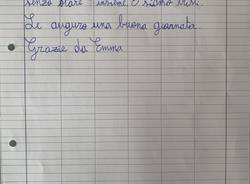 senza stare insieme e siamo
Le auguro una buona giornata
Grazie da Emma